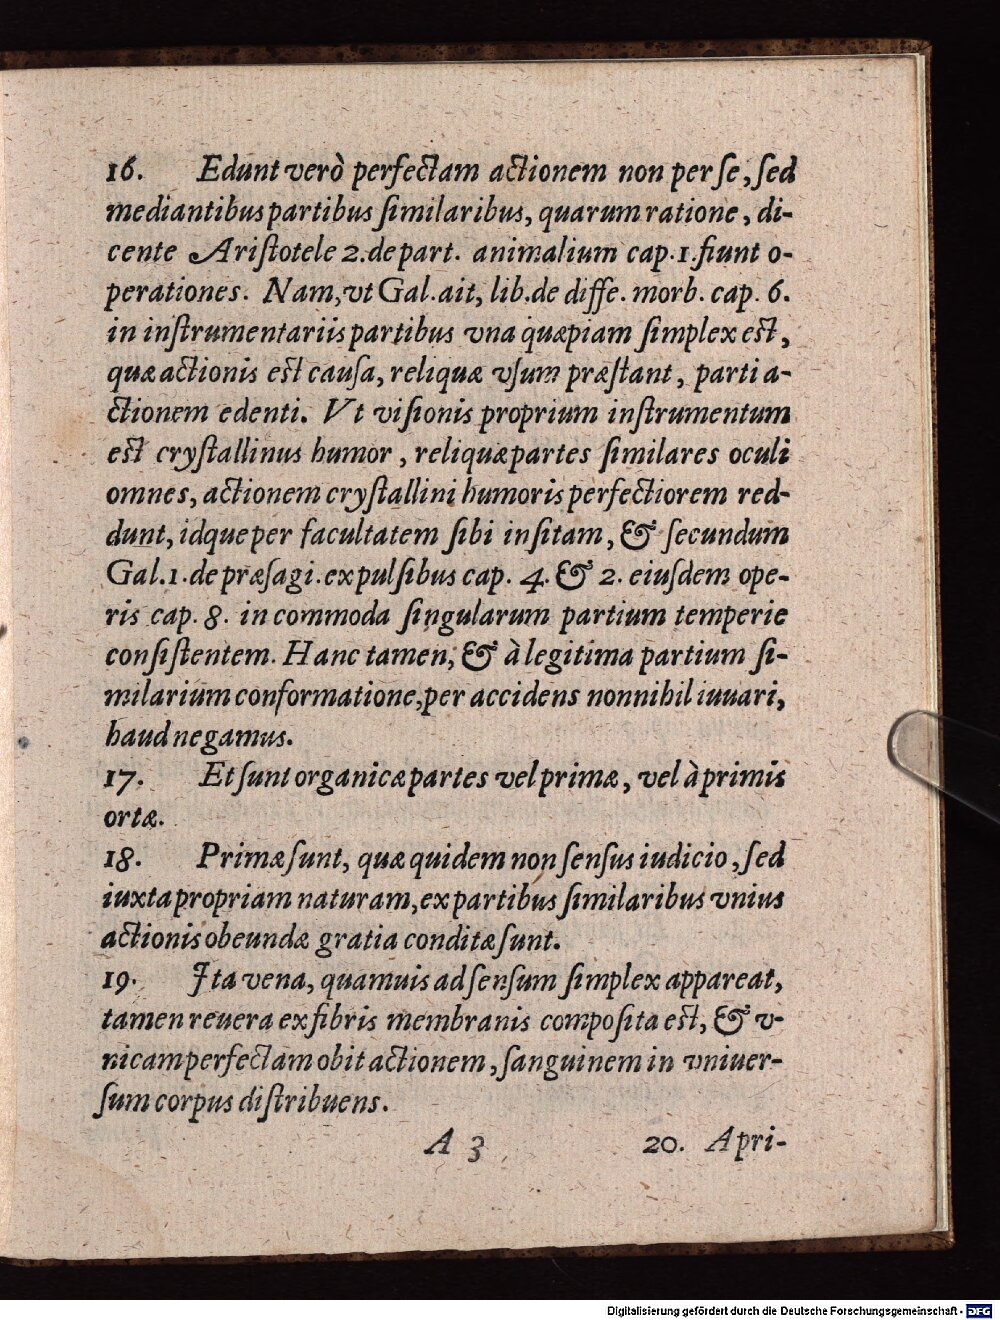 16. Edunt verò perfectam actionem non per se, sed
mediantibus partibus similaribus, quarum ratione, di-
cente Aristotele 2. de part. animalium cap. 1. fiunt o-
perationes. Nam, vt Gal. ait, lib. de diffe. morb. cap. 6.
in instrumentariis partibus vna quæpiam simplex est,
quæ actionis est causa, reliquæ vsum præstant, parti a-
ctionem edenti. Vt visionis proprium instrumentum
est crystallinus humor, reliquæ partes similares oculi
omnes, actionem crystallini humoris perfectiorem red-
dunt, idque per facultatem sibi insitam, & secundum
Gal. 1. de præsagi. ex pulsibus cap. 4. & 2. eiusdem ope-
ris cap. 8. in commoda singularum partium temperie
consistentem. Hanc tamen, & à legitima partium si-
milarium conformatione, per accidens nonnihil iuuari,
haud negamus.
17. Et sunt organicæ partes vel primæ, vel à primis
ortæ.
18. Primæ sunt, quæ quidem non sensus iudicio, sed
iuxta propriam naturam, ex partibus similaribus vnius
actionis obeundæ gratia conditæ sunt.
19. Ita vena, quamuis ad sensum simplex appareat,
tamen reuera ex fibris membranis composita est, & v-
nicam perfectam obit actionem, sanguinem in vniuer-
sum corpus distribuens.
A 3 20. A pri-
Digitalisierung gefördert durch die Deutsche Forschungsgemeinschaft - DFG